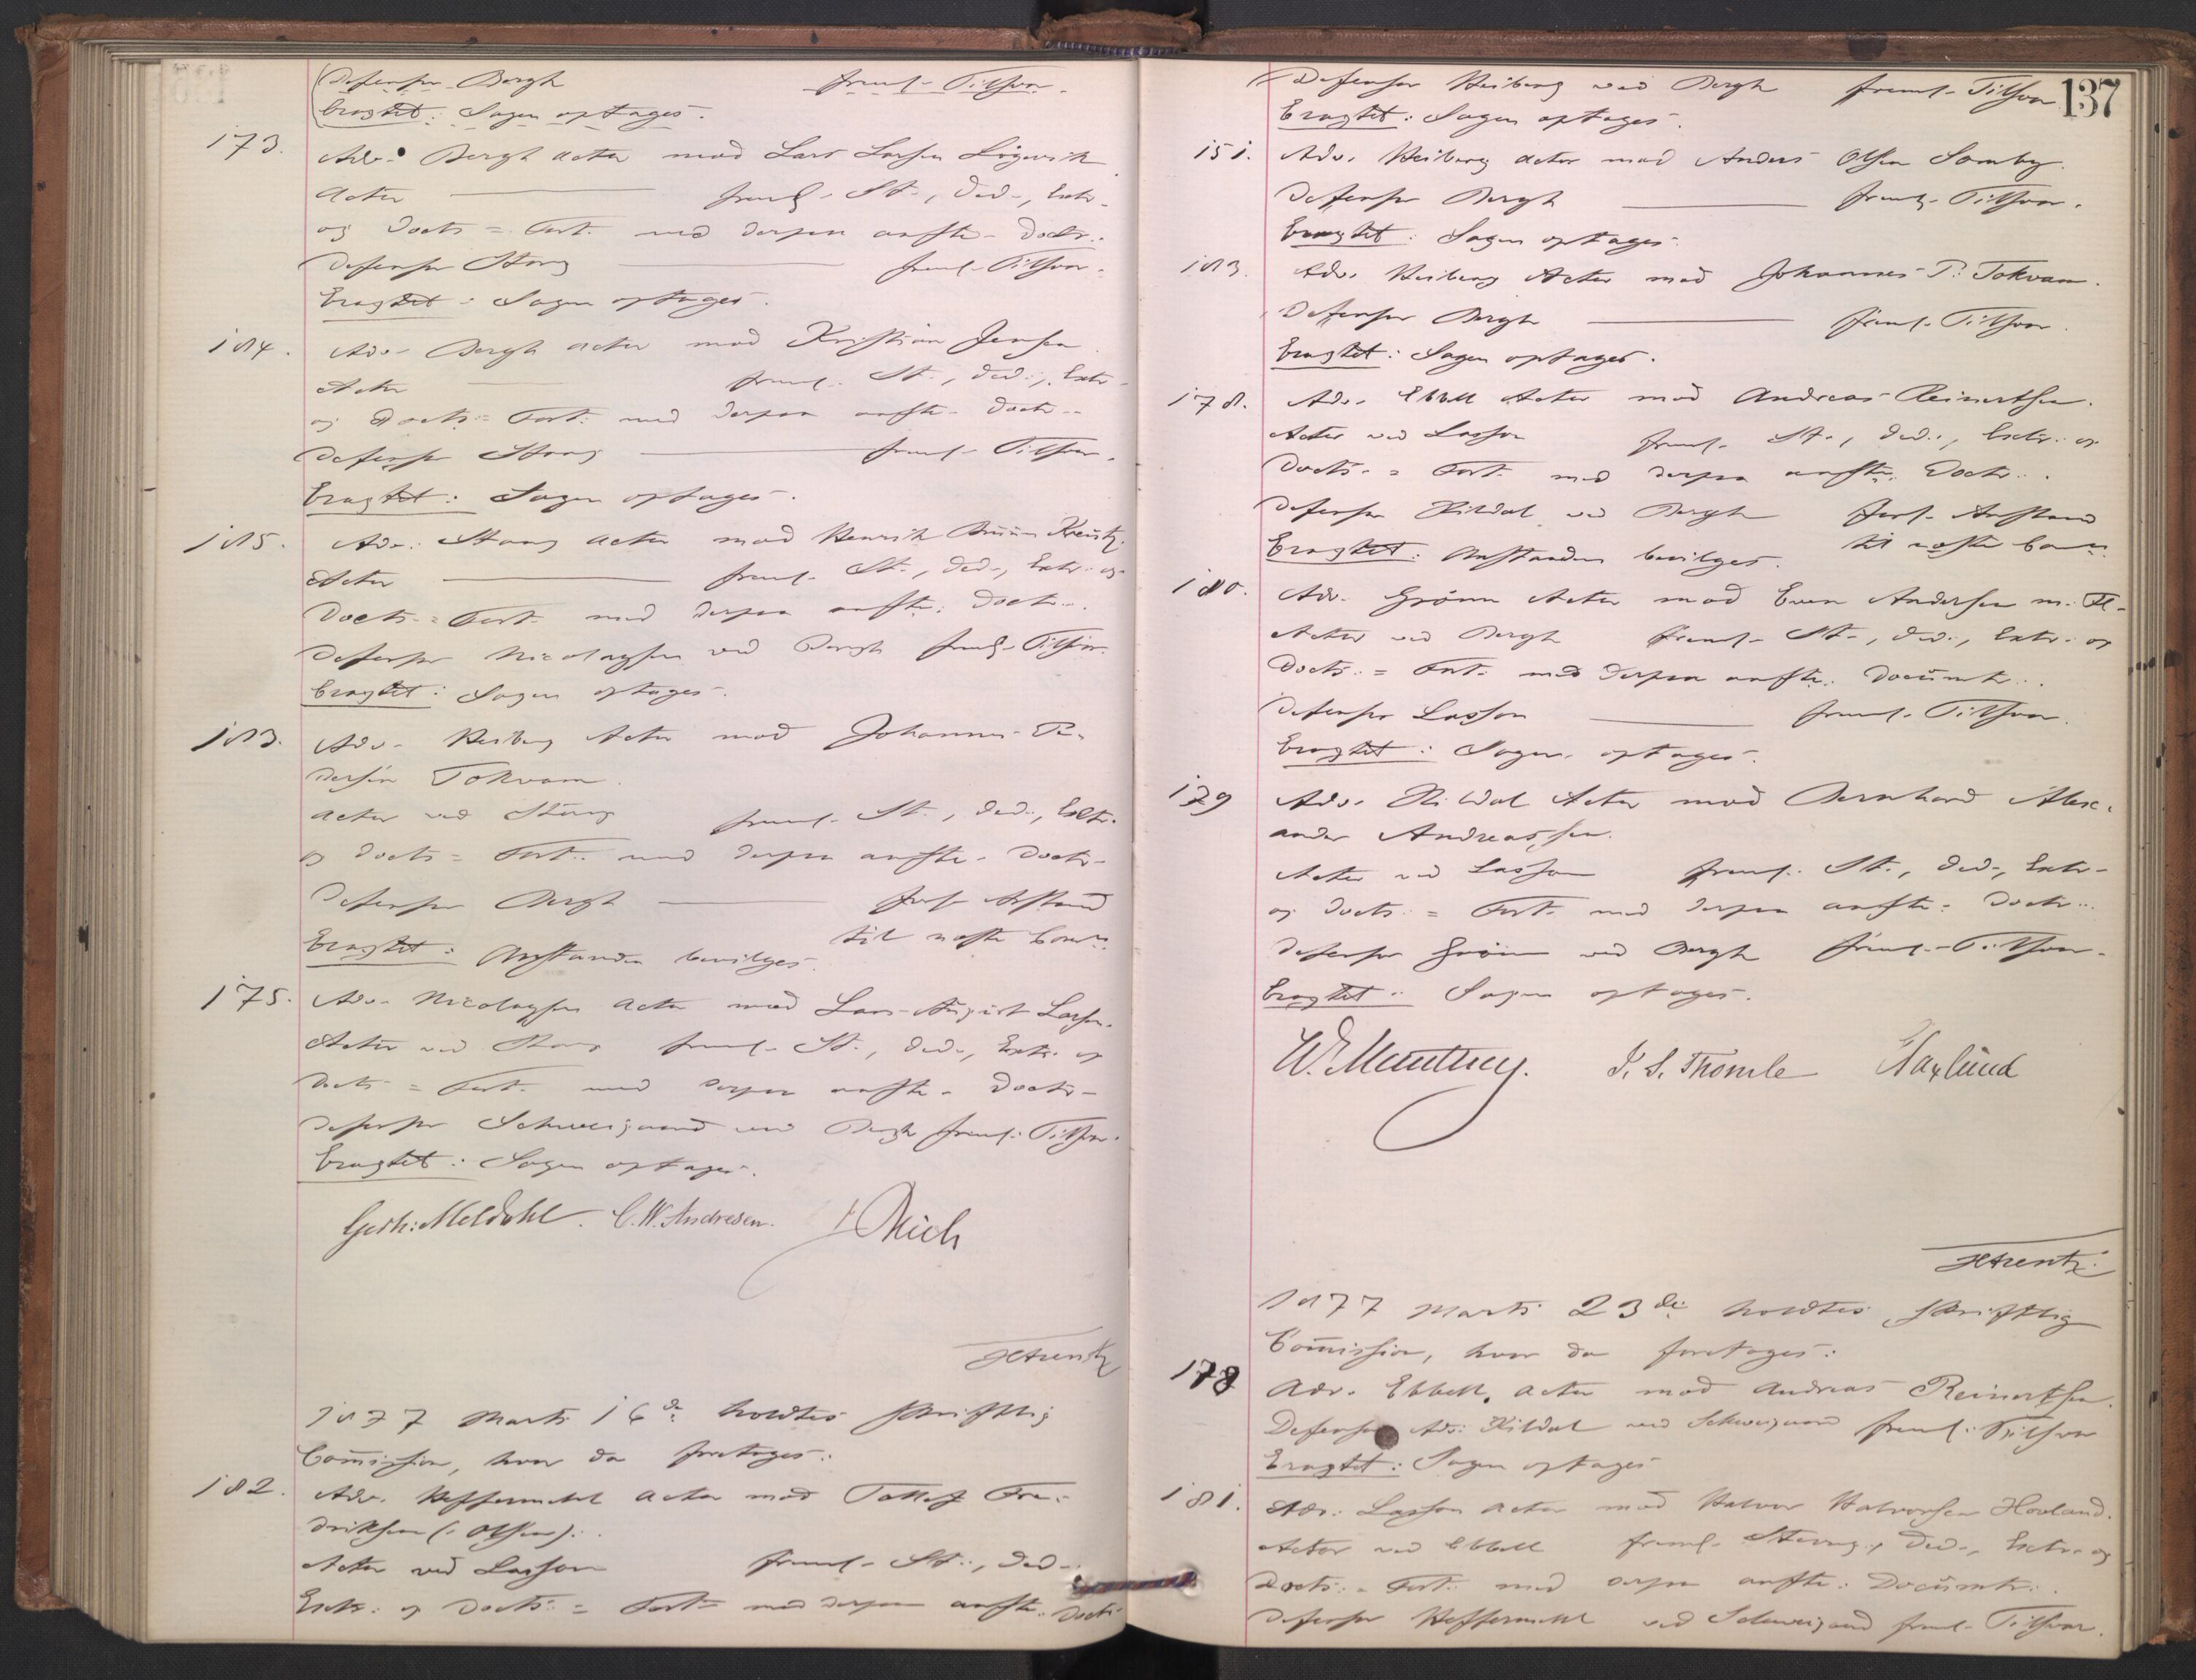 Defensor Bergh freml. Tilsvar.
Eragtet: Sagen optages.
173. Adv. Bergh Actor mod Lars Larsen
Actor freml. St., Ded., Extr.
og Docts = Fort. med derpaa anførte Docts.
Defensor Stang freml. Tilsvar.
Eragtet: Sagen optages.
184. Adv. Bergh Actor mod Kristian Jensen
Actor freml. St., Ded., Extr.
og Docts = Fort. med derpaa anførte Docts.
Defensor Stang freml. Tilsvar.
Eragtet: Sagen optages.
185. Adv. Stang Actor mod Henrik Kreutz.
Actor freml. St., Ded., Extr. og
Docts = Fort. med derpaa anførte Docts.
Defensor Nicolaysen ved Bergh freml. Tilsvar.
Eragtet: Sagen optages.
183. Adv. Heiberg Actor mod Johannes Pe-
dersen Tokvam.
Actor ved Stang freml. St., Ded., Extr.
og Docts = Fort. med derpaa anførte Docts.
Defensor Bergh forl. Anstand
til næste Comm.
Eragtet: Anstanden bevilges.
175. Adv. Nicolaysen Actor mod Lars August Larsen.
Actor ved Stang freml. St., Ded., Extr. og
Docts = Fort. med derpaa anførte Docts.
Defensor Schweigaard ved Bergh freml. Tilsvar.
Eragtet: Sagen optages.
Gerh: Meldahl. C. W. Andresen.
1877 Marts 16de holdtes skriftlig
Commission, hvor da foretages:
182. Adv. Heffermehl Actor mod Tallef Fre-
driksen (Olsen).
Actor ved Lasson freml. St., Ded.
Extr. og Docts = Fort. med derpaa anførte Docts
137
Defensor Heiberg ved Bergh freml. Tilsvar
Eragtet: Sagen optages.
151. Adv. Heiberg Actor mod Anders Olsen Somby.
Defensor Bergh freml. Tilsvar.
Eragtet: Sagen optages.
183. Adv. Heiberg Actor mod Johannes P. Tokvam.
Defensor Bergh freml. Tilsvar.
Eragtet: Sagen optages.
178. Adv. Ebbell Actor mod Andreas Reinertsen.
Actor ved Lasson freml. St., Ded., Extr. og
Docts. = Fort. med derpaa anførte Docts.
Defensor Kildal ved Bergh forl. Anstand
til næste Comm.
Eragtet: Anstanden bevilges.
180. Adv. Grønn Actor mod Even Andersen m. Fl.
Actor ved Bergh freml. St., Ded., Extr. og
Docts. = Fort. med derpaa anførte Documtr.
Defensor Lasson freml. Tilsvar.
Eragtet: Sagen optages.
179 Adv. Kildal Actor mod Bernhard Alex-
ander Andreassen.
Actor ved Lasson freml. St., Ded., Extr.
og Docts. = Fort. med derpaa anførte Docts.
Defensor Grønn ved Bergh freml. Tilsvar.
Eragtet: Sagen optages.
J. S. Thomle Haxlund
1877 Marts 23de holdtes skriftlig
Commission, hvor da foretages:
178 Adv. Ebbell, Actor mod Andreas Reinertsen.
Defensor Adv. Kildal ved Schweigaard freml. Tilsvar
Eragtet: Sagen optages
181. Adv. Lasson Actor mod Halvor Halvorsen Hovland.
Actor ved Ebbell freml. Stevng., Ded., Extr. og
Docts. = Fort. med derpaa anførte Documtr.
Defensor Heffermehl ved Schweigaard freml. Tilsvar.